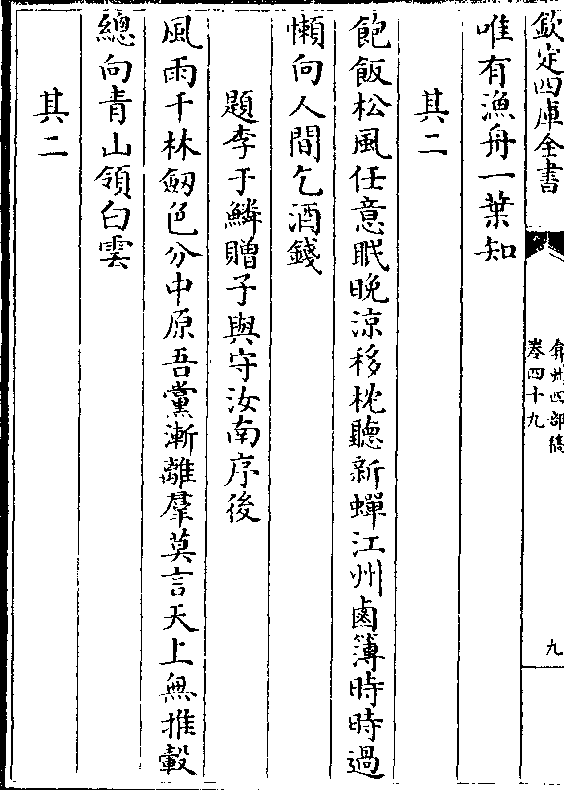 欽定四庫全書
弇州四部稿
卷四十九
九
唯有漁舟一葉知
其二
飽飯松風任意眠晚涼移枕聽新蟬江州鹵簿時時過
懶向人間乞酒錢
題李于鱗贈子與守汝南序後
風雨千林劒色分中原吾黨漸離羣莫言天上無推轂
總向青山領白雲
其二